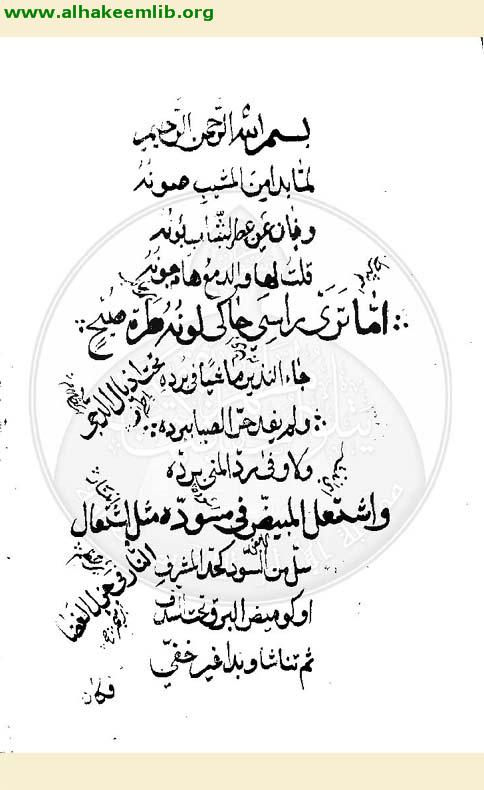 www.alhakeemlib.org
بسم الله الرحمن الرحيم
لما بدا من المشيب صونه
وبان عن عصر الشباب بونه
قلت لها والدمع هام جونه
اما ترى راسي حاكى لونه طرة صبح
تحت اذيال الدجى
جاء النذير ماشيا في برده
ولم يفد حر الصبا ببرده
ولا وفى رد المنى برده
واشتعل المبيض في مسوده مثل اشتعال
النار في جزل الغضا
سل من السود كحد المشرفي
او كوميض البرق تحت السدف
ثم تناشا وبدا غير خفي
فكان